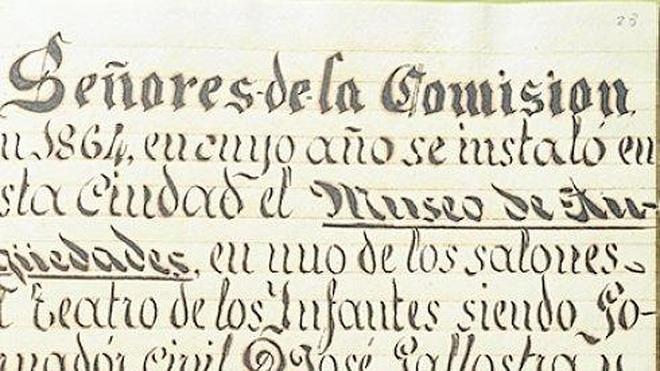 28
Señores de la Comision
n 1864, en cuyo año se instaló en
sta Ciudad el Museo de An-
güedades, en uno de los salones
l Teatro de los Infantes siendo Go-
rnador civil D José Gallostra y